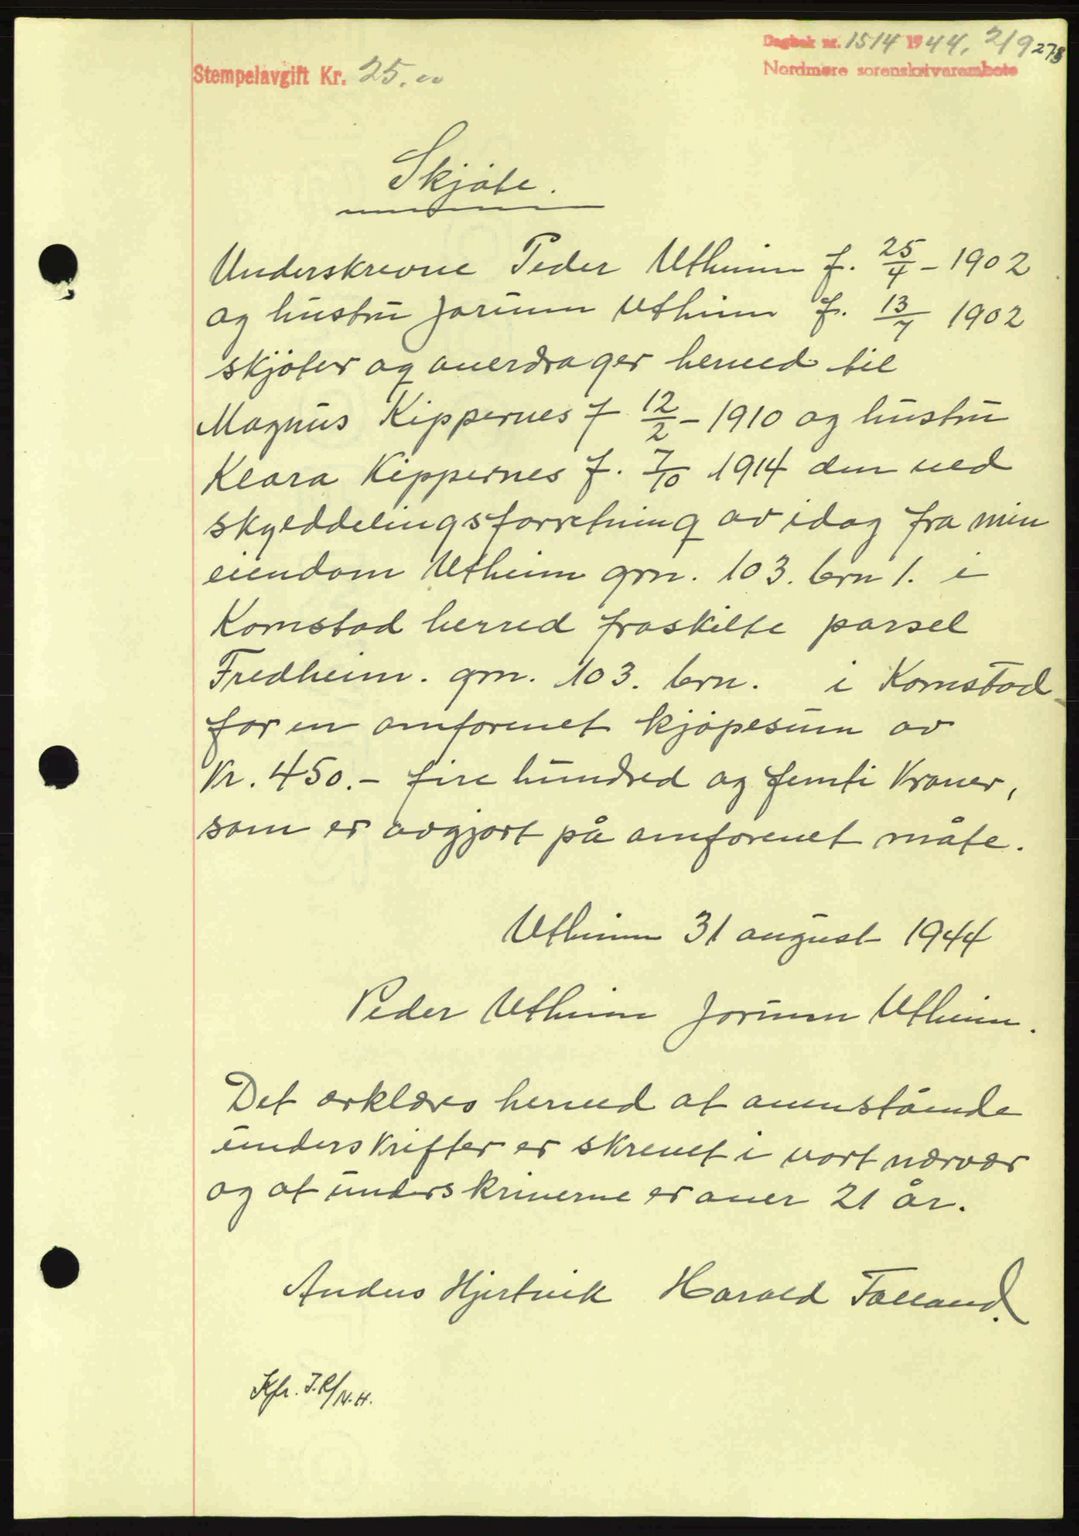 Dagbok nr. 1514 1944, 2/9 278
Stempelavgift Kr. 25.00
Nordmøre sorenskriverembete
Skjøte.
Underskrevne Peder Utheim f. 25/4 - 1902
og hustru Jorunn Utheim f. 13/7 1902
skjøter og overdrager herved til
Magnus Kippernes f 12/2 - 1910 og hustru
Klara Kippernes f. 7/10 1914 den ved
skylddelingsforretning av idag fra min
eiendom Utheim grn. 103. brn 1. i
Kornstad herred fraskilte parsel
Fredheim. grn. 103. brn. i Kornstad
for en omforenet kjøpesum av
Kr. 450.- fire hundred og femti Kroner,
som er avgjort på omforenet måte.
Utheim 31 august 1944
Peder Utheim Jorunn Utheim.
Det erklæres herved at ovenstående
underskrifter er skrevet i vort nærvær
og at underskriverne er over 21 år.
Anders Hjertvik Harald Folland.
Kfr. J.R/N.H.